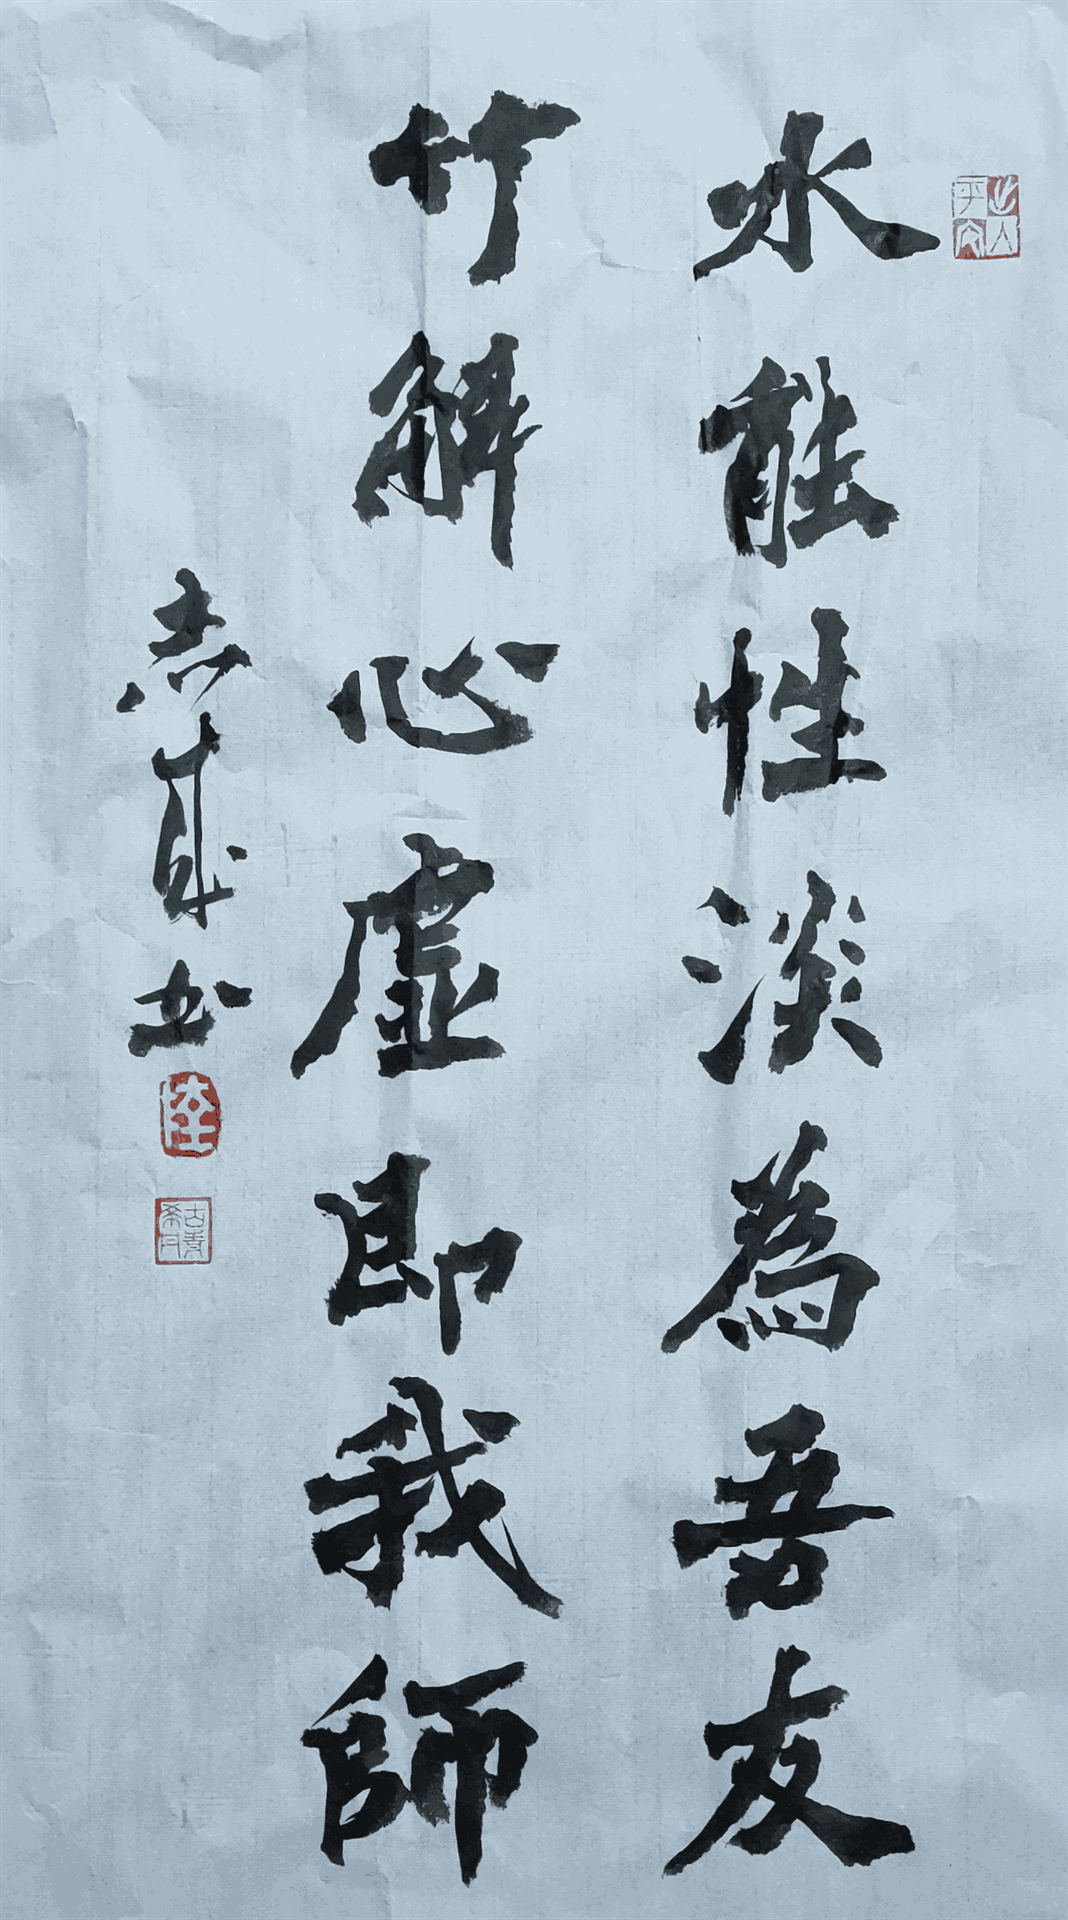 水能性淡為吾友
竹解心虛即我師
志 书
陸